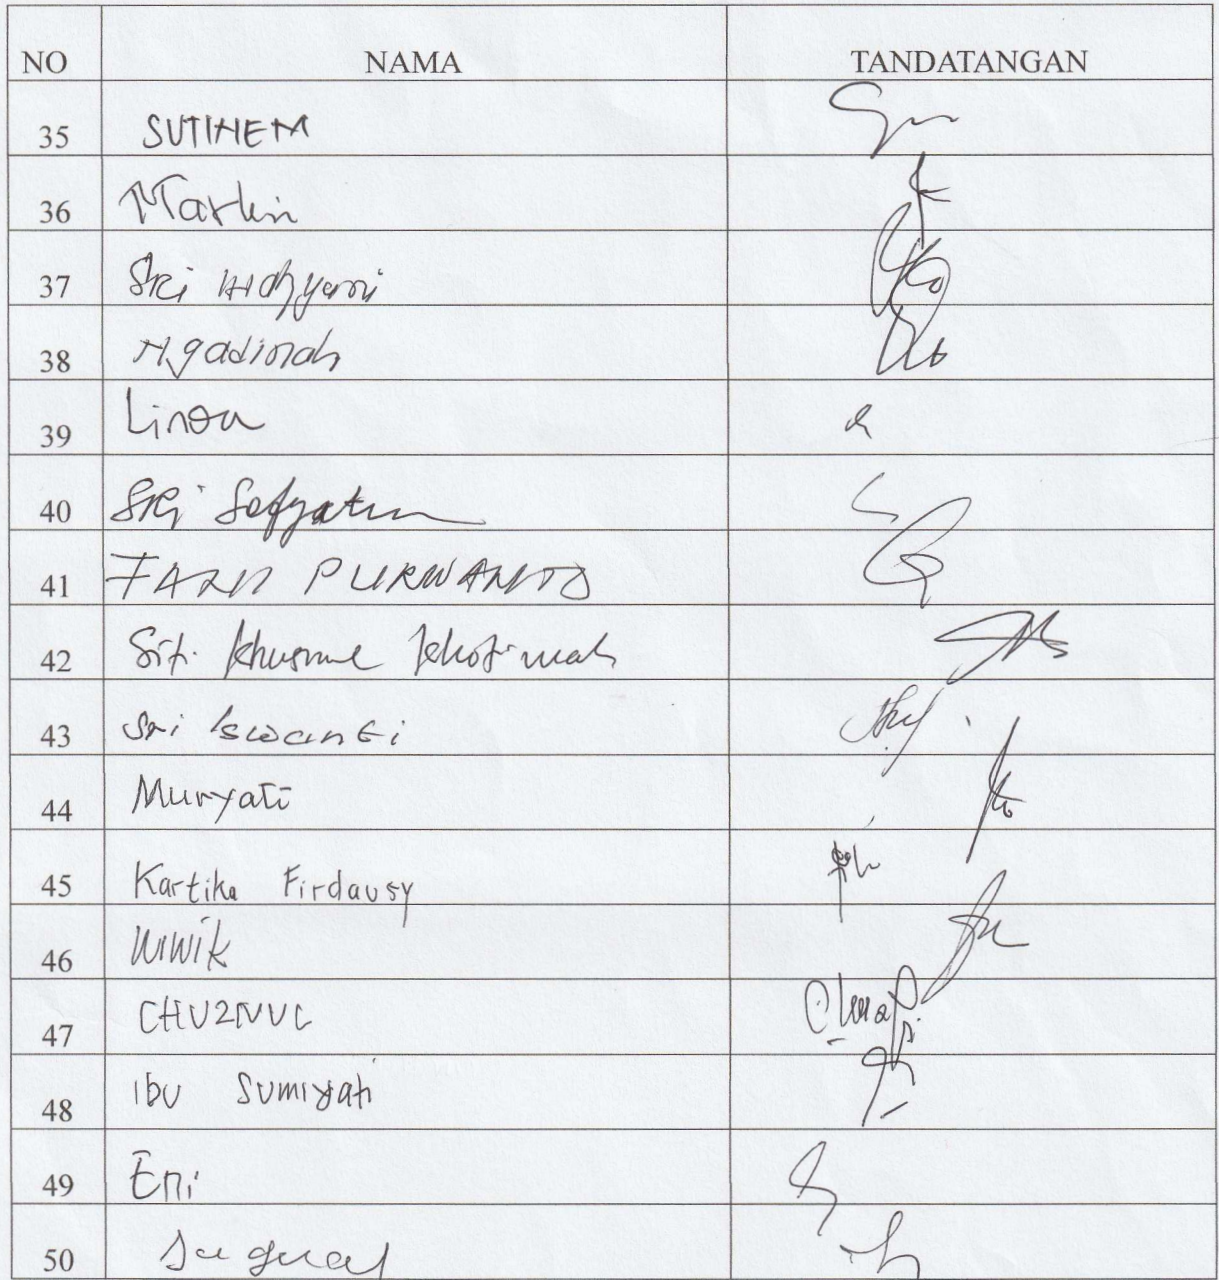 NO NAMA TANDATANGAN
35 SUTINEM
36 Martin
37 Sri
38 Ngadinah
39 Linda
40 Sri
41 PURWANTO
42 Siti Khusnul Khotimah
43 Sri Iswanti
44 Muryati
45 Kartika Firdausy
46 WIWIK
47 CHUZNUL
48 Ibu Sumiyati
49 Eni
50